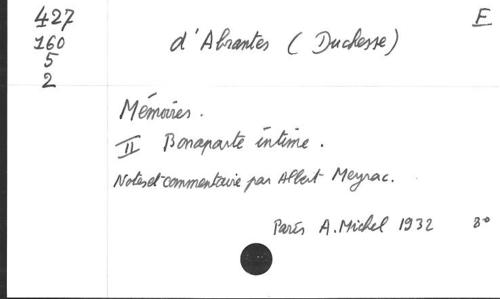 427
160
5
2
E
d'Abrantes (Duchesse)
Mémoires.
II Bonaparte intime.
Notes et commentaire par Albert Meyrac.
Paris A. Michel 1932 8°